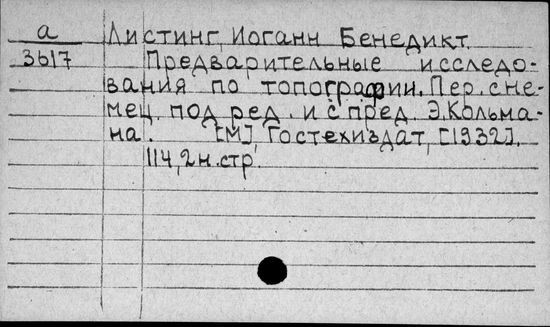 а Листинг, Иоганн Бенедикт.
3617 Предварительные исследо-
вания по топографии. Пер. с не-
мец. под ред. и с пред. Э. Кольма-
на. [М], Гостехиздат, [1932].
114, 2 н. стр.